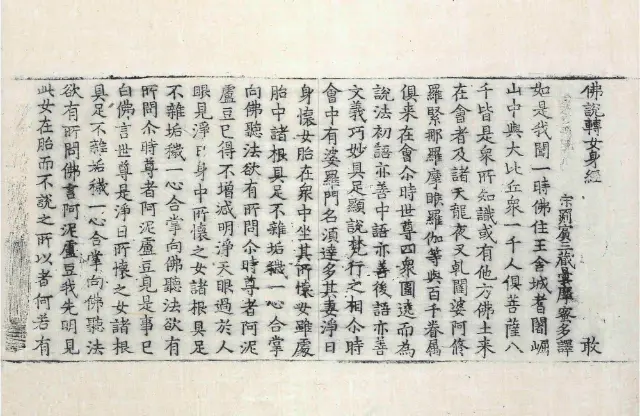 佛說轉女身經 敢
宋罽賓三藏曇摩蜜多譯
如是我聞一時佛住王舍城耆闍崛
山中與大比丘衆一千人俱菩薩八
千皆是衆所知識或有他方佛土来
在會者及諸天龍夜叉乹闥婆阿修
羅緊那羅摩睺羅伽等與百千眷属
俱来在會尒時世尊四衆圍遶而為
說法初語亦善中語亦善後語亦善
文義巧妙具足顯說梵行之相尒時
會中有婆羅門名須達多其妻淨日
身懷女胎在衆中坐其所懷女雖處
胎中諸根具足不雜垢穢一心合掌
向佛聽法欲有所問尒時尊者阿泥
盧豆已得不增减明淨天眼過於人
眼見淨日身中所懷之女諸根具足
不雜垢穢一心合掌向佛聽法欲有
所問尒時尊者阿泥盧豆見是事已
白佛言世尊是淨日所懷之女諸根
具足不雜垢穢一心合掌向佛聽法
欲有所問佛言阿泥盧豆我先明見
此女在胎而不說之所以者何若有